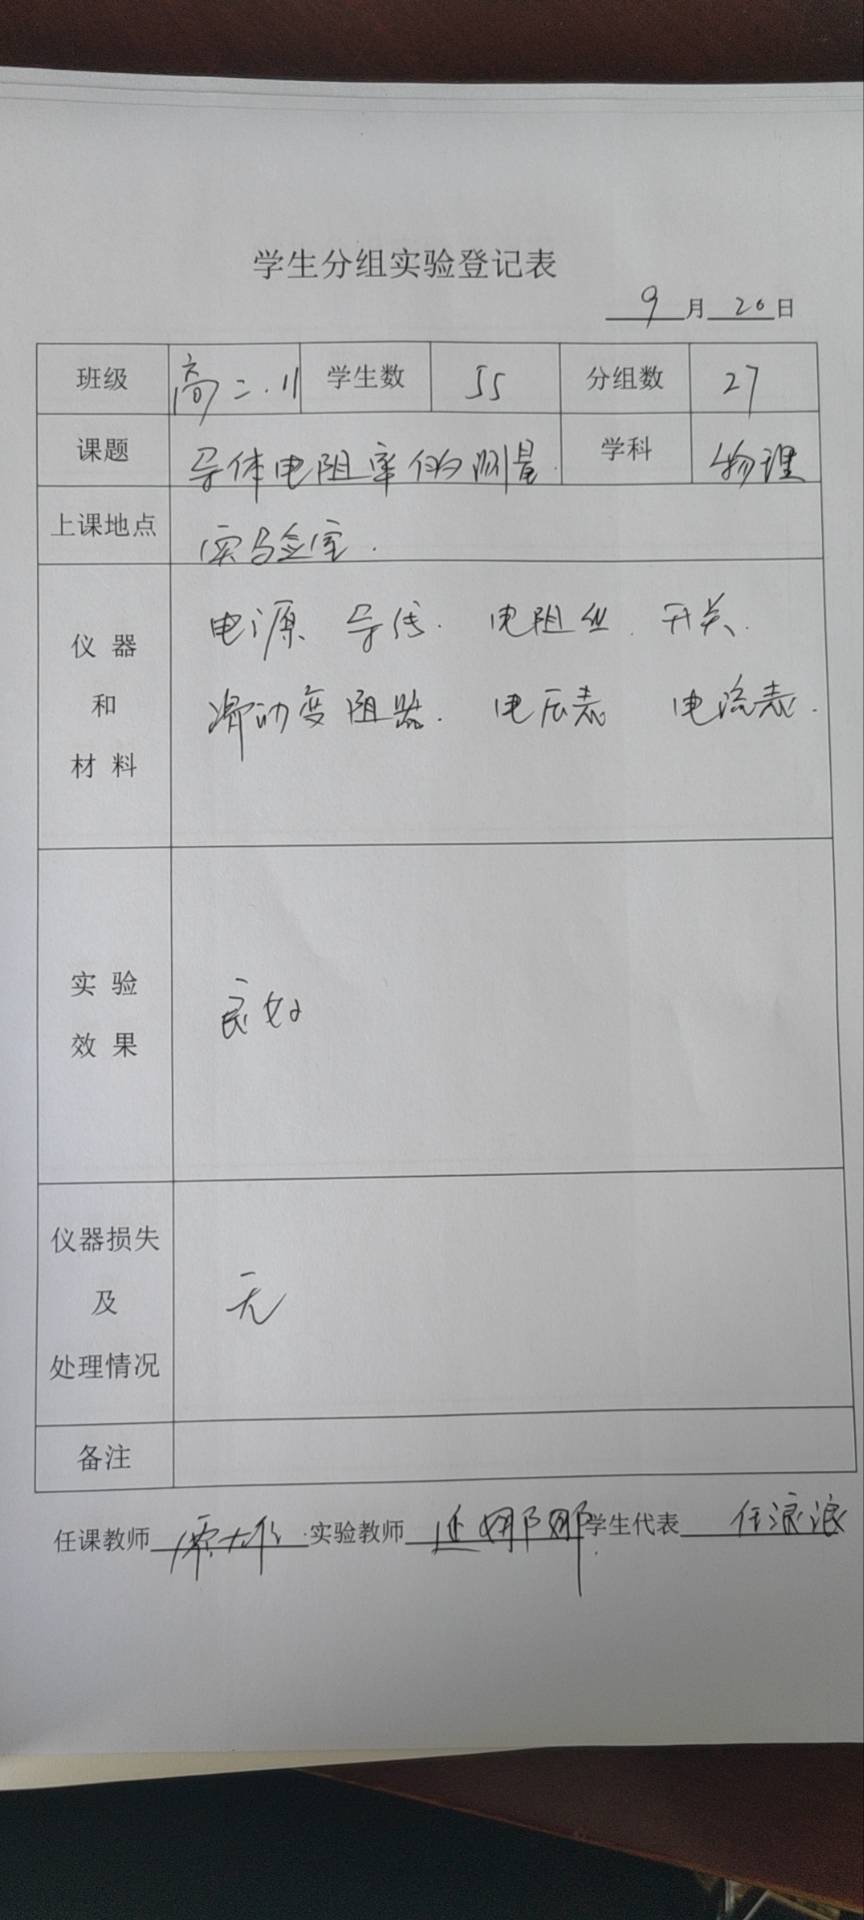 学生分组实验登记表
9月20日
班级 高二.11 学生数 55 分组数 27
课题 导体电阻率的测量. 学科 物理
上课地点 实验室.
仪器和材料
电源 导线. 电阻丝. 开关.
滑动变阻器. 电压表 电流表.
实验效果 良好
仪器损失及处理情况 无
备注
任课教师 实验教师 延娜娜 学生代表 任浪浪